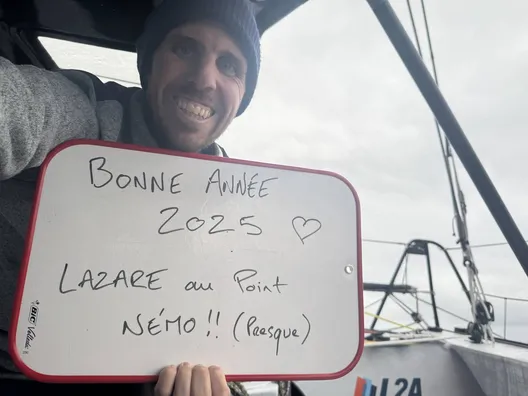 BONNE ANNÉE
2025 ♡
LAZARE au Point
NÉMO!! (Presque)
BIC Velleda
L2A